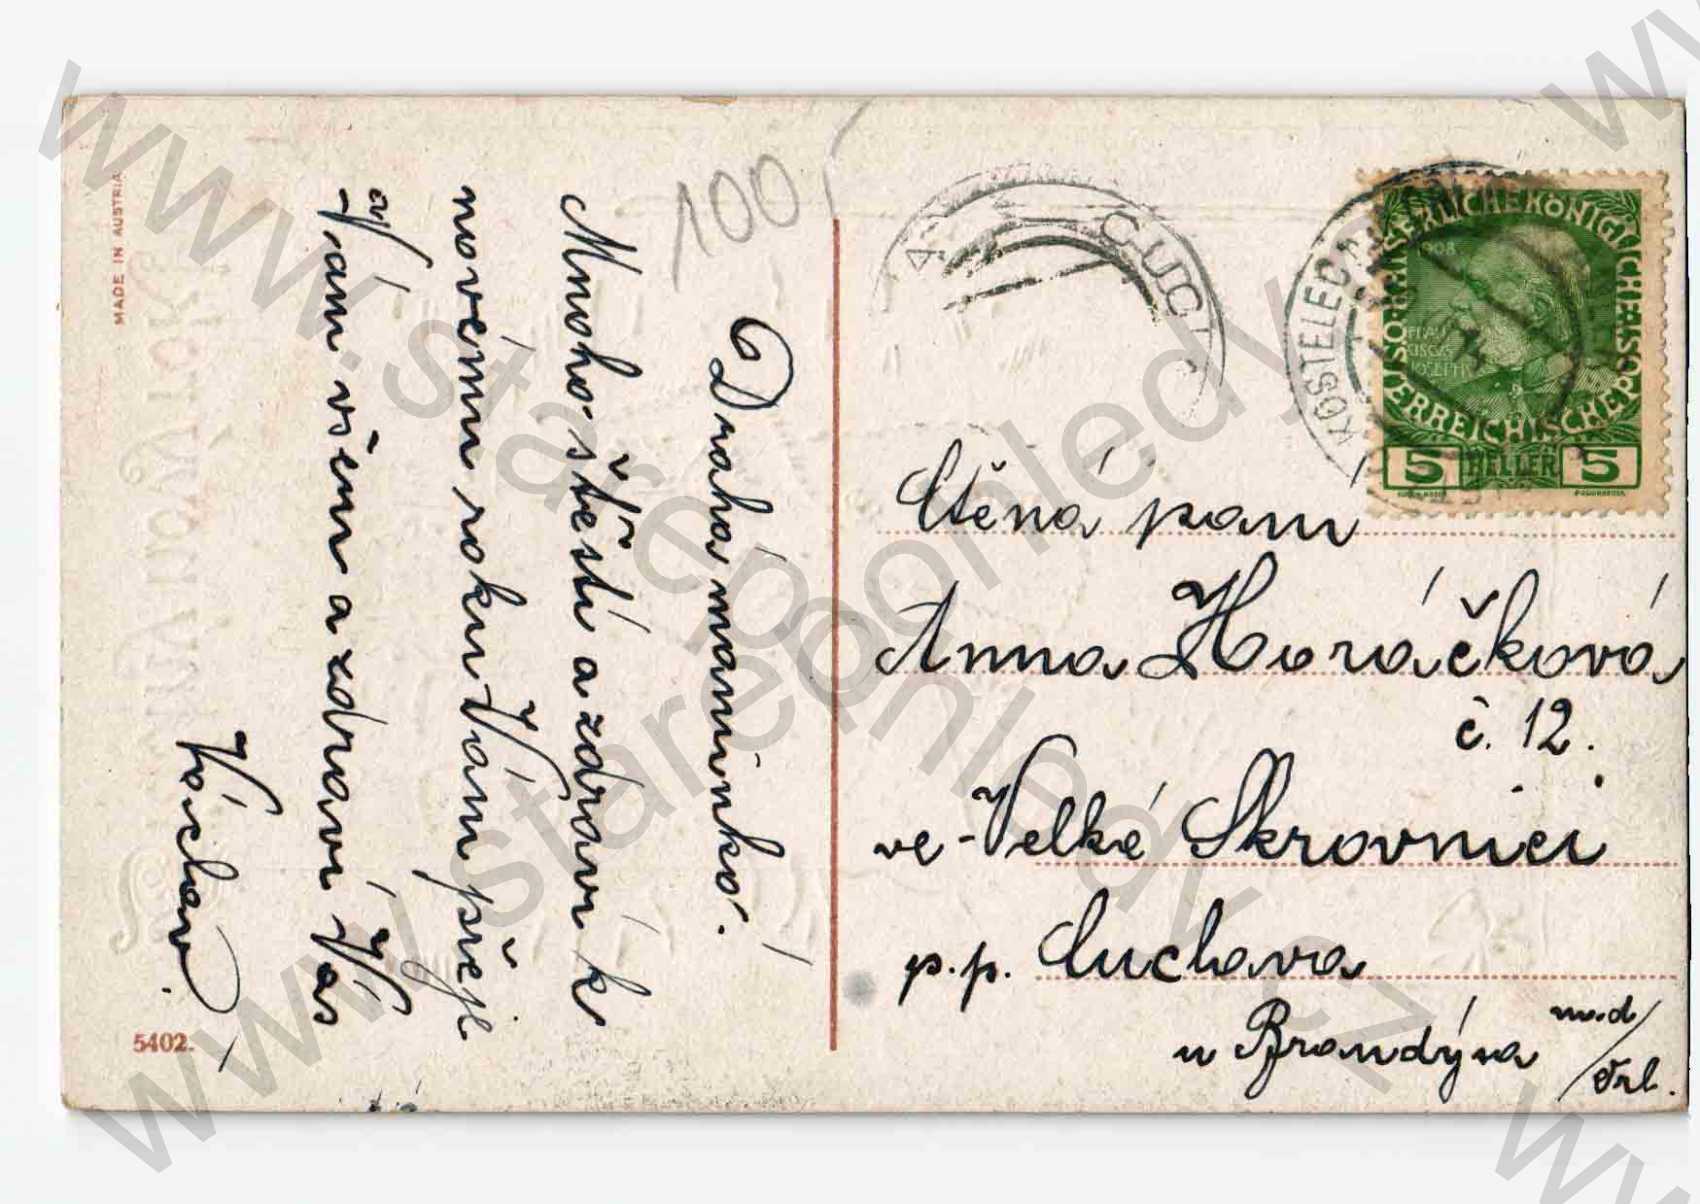 MADE IN AUSTRIA
100
Drahá maminko!
Mnoho štěstí a zdraví k
novému roku Vám přeje
a Vám všem a zdraví Vás
Václav.
5402.
KOSTELEC
KAISERLICHE KÖNIGLICHE ÖSTERREICHISCHE POST
1908
FRANZ
JOSEPH I
5 HELLER 5
Ctěná paní
Anna Horáčková
č. 12.
ve Velké Skrovnici
p. p. Čuclava
u Brandýsa
nad/
Orl.
www.starepohledy.cz
www.starepohledy.cz